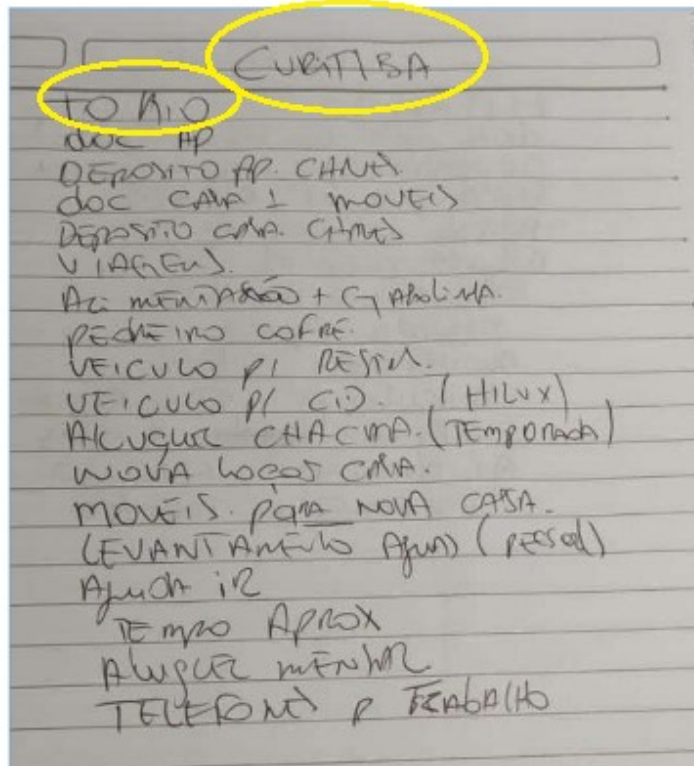 CURITIBA
TOKIO
doc AP
DEPOSITO AP. CHAVES
doc CASA 1 MOVEIS
DEPOSITO CASA. CHAVES
VIAGENS.
ALIMENTASSÃO + GASOLINA.
PEDREIRO COFRE.
VEICULO P/
VEICULO P/ CID. (HILUX)
ALUGUEL CHACARA. (TEMPORADA)
NOVA CASA.
MOVEIS. PARA NOVA CASA.
LEVANTAMENTO (PESSOAL)
AJUDA
TEMPO APROX
ALUGUEL MENSAL
TELEFONES P TRABALHO